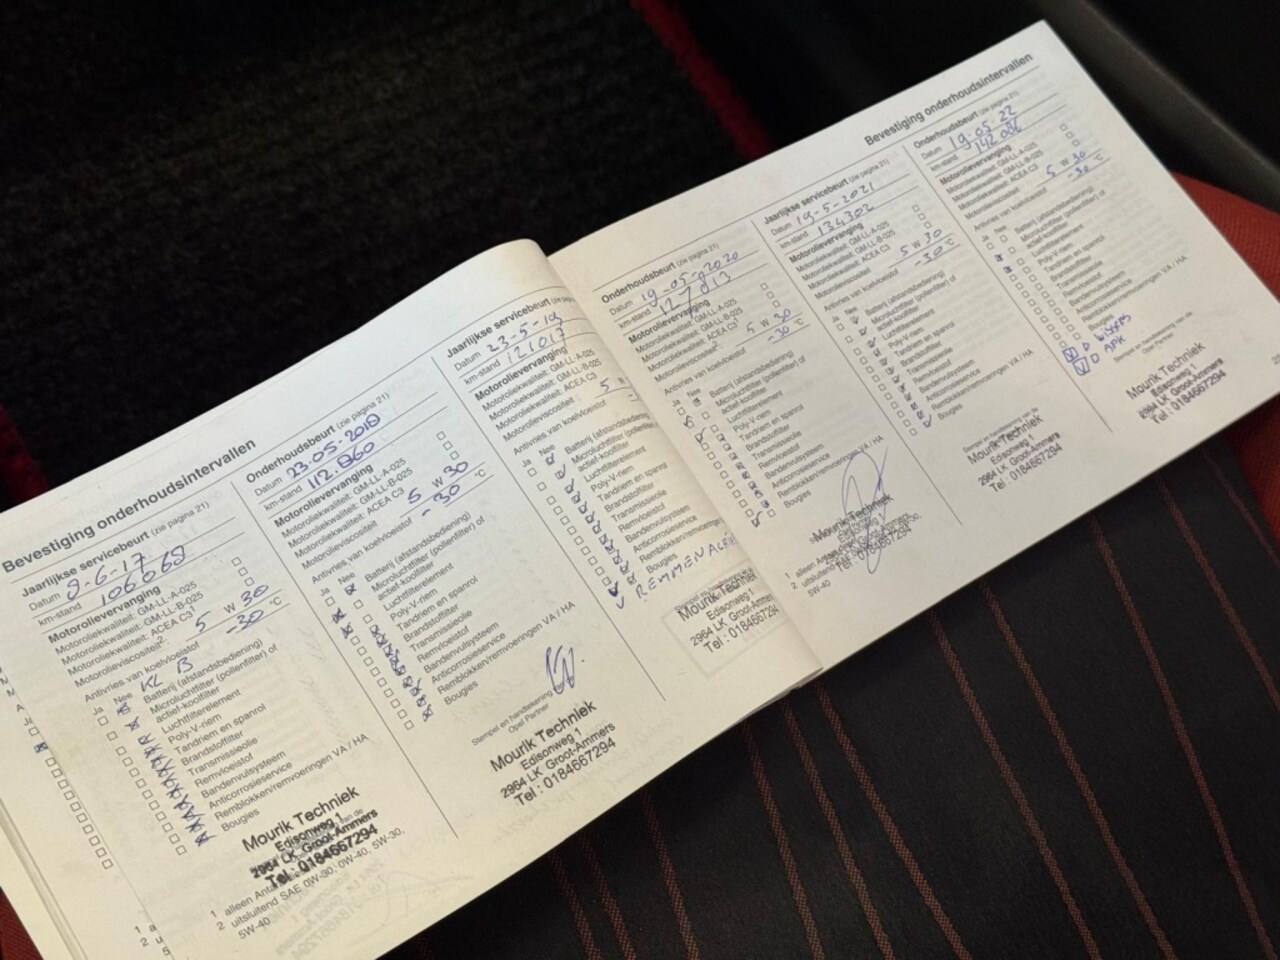 Bevestiging onderhoudsintervallen
Jaarlijkse servicebeurt (zie pagina 21)
Datum 9-6-17
km-stand 106068
Motorolievervanging
Motoroliekwaliteit: GM-LL-A-025
Motoroliekwaliteit: GM-LL-B-025
Motoroliekwaliteit: ACEA C3¹
Motorolieviscositeit² 5 W 30
Antivries van koelvloeistof -30 °C
KL B
Ja Nee
Batterij (afstandsbediening)
Microluchtfilter (pollenfilter) of
actief-koolfilter
Luchtfilterelement
Poly-V-riem
Tandriem en spanrol
Brandstoffilter
Transmissieolie
Remvloeistof
Bandenvulsysteem
Anticorrosieservice
Remblokken/remvoeringen VA / HA
Bougies
Mourik Techniek
Edisonweg 1
2964 LK Groot-Ammers
Tel : 0184667294
2 uitsluitend SAE 0W-30, 0W-40, 5W-30,
5W-40
Onderhoudsbeurt (zie pagina 21)
Datum 23-05-2018
km-stand 112.860
Motorolievervanging
Motoroliekwaliteit: GM-LL-A-025
Motoroliekwaliteit: GM-LL-B-025
Motoroliekwaliteit: ACEA C3
Motorolieviscositeit 5 W 30
Antivries van koelvloeistof -30 °C
Ja Nee
Batterij (afstandsbediening)
Microluchtfilter (pollenfilter) of
actief-koolfilter
Luchtfilterelement
Poly-V-riem
Tandriem en spanrol
Brandstoffilter
Transmissieolie
Remvloeistof
Bandenvulsysteem
Anticorrosieservice
Remblokken/remvoeringen VA / HA
Bougies
Stempel en handtekening
Opel Partner
Mourik Techniek
Edisonweg 1
2964 LK Groot-Ammers
Tel : 0184667294
Jaarlijkse servicebeurt (zie
Datum 23-5-19
km-stand 121017
Motorolievervanging
Motoroliekwaliteit: GM-LL-A-025
Motoroliekwaliteit: GM-LL-B-025
Motoroliekwaliteit: ACEA C3
Motorolieviscositeit 5 W
Antivries van koelvloeistof
Ja Nee
Batterij (afstandsbediening
Microluchtfilter (pollenfilter)
actief-koolfilter
Luchtfilterelement
Poly-V-riem
Tandriem en spanrol
Brandstoffilter
Transmissieolie
Remvloeistof
Bandenvulsysteem
Anticorrosieservice
Remblokken/remvoeringen
Bougies
Mourik Techniek
Edisonweg 1
2964 LK Groot-Ammers
Tel : 0184667294
Bevestiging onderhoudsintervallen
Onderhoudsbeurt (zie pagina 21)
Datum 19-05-2020
km-stand 127013
Motorolievervanging
Motoroliekwaliteit: GM-LL-A-025
Motoroliekwaliteit: GM-LL-B-025
Motoroliekwaliteit: ACEA C3¹
Motorolieviscositeit² 5 W 30
Antivries van koelvloeistof -30 °C
Ja Nee
Batterij (afstandsbediening)
Microluchtfilter (pollenfilter) of
actief-koolfilter
Luchtfilterelement
Poly-V-riem
Tandriem en spanrol
Brandstoffilter
Transmissieolie
Remvloeistof
Bandenvulsysteem
Anticorrosieservice
Remblokken/remvoeringen VA / HA
Bougies
Mourik Techniek
Edisonweg 1
2964 LK Groot-Ammers
Tel : 0184667294
1 alleen
2 uitsluitend
5W-40
Jaarlijkse servicebeurt (zie pagina 21)
Datum 19-5-2021
km-stand 134302
Motorolievervanging
Motoroliekwaliteit: GM-LL-A-025
Motoroliekwaliteit: GM-LL-B-025
Motoroliekwaliteit: ACEA C3
Motorolieviscositeit 5 W 30
Antivries van koelvloeistof -30 °C
Ja Nee
Batterij (afstandsbediening)
Microluchtfilter (pollenfilter) of
actief-koolfilter
Luchtfilterelement
Poly-V-riem
Tandriem en spanrol
Brandstoffilter
Transmissieolie
Remvloeistof
Bandenvulsysteem
Anticorrosieservice
Remblokken/remvoeringen VA / HA
Bougies
Mourik Techniek
Edisonweg 1
2964 LK Groot-Ammers
Tel : 0184667294
Onderhoudsbeurt (zie pagina 21)
Datum 19-05-22
km-stand 142086
Motorolievervanging
Motoroliekwaliteit: GM-LL-A-025
Motoroliekwaliteit: GM-LL-B-025
Motoroliekwaliteit: ACEA C3
Motorolieviscositeit 5 W 30
Antivries van koelvloeistof -30 °C
Ja Nee
Batterij (afstandsbediening)
Microluchtfilter (pollenfilter) of
actief-koolfilter
Luchtfilterelement
Poly-V-riem
Tandriem en spanrol
Brandstoffilter
Transmissieolie
Remvloeistof
Bandenvulsysteem
Anticorrosieservice
Remblokken/remvoeringen VA / HA
Bougies
APK
Mourik Techniek
Edisonweg 1
2964 LK Groot-Ammers
Tel : 0184667294